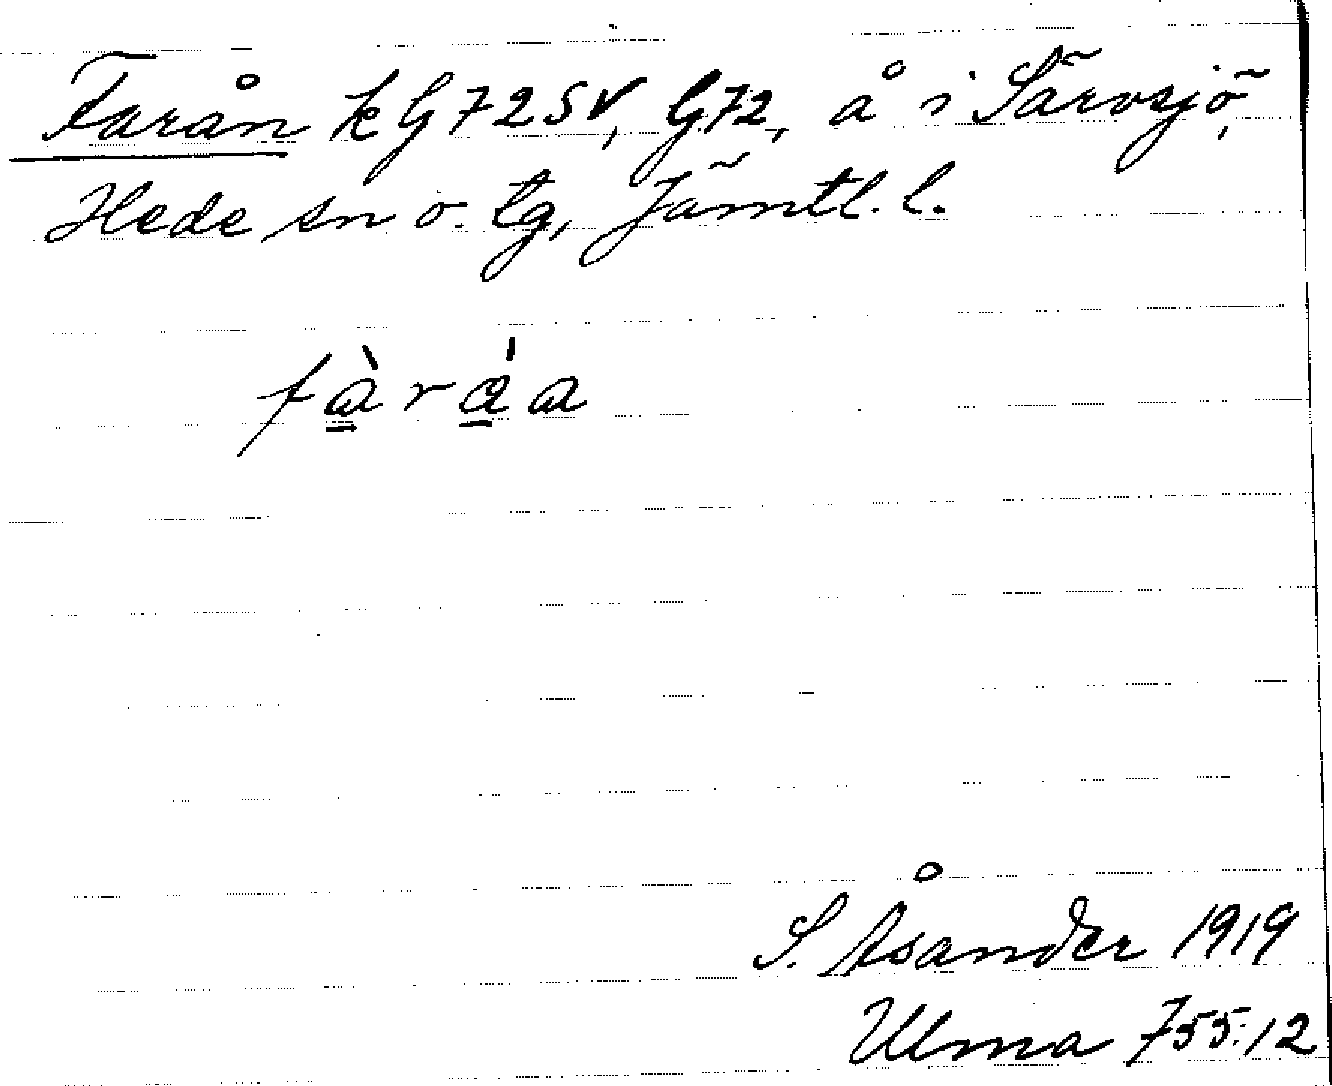 Farån k G 72 SV, G72, å i Särvsjö,
Hede sn o. tg, Jämtl. l.
fàråa
S. Åsander 1919
Ulma 755:12